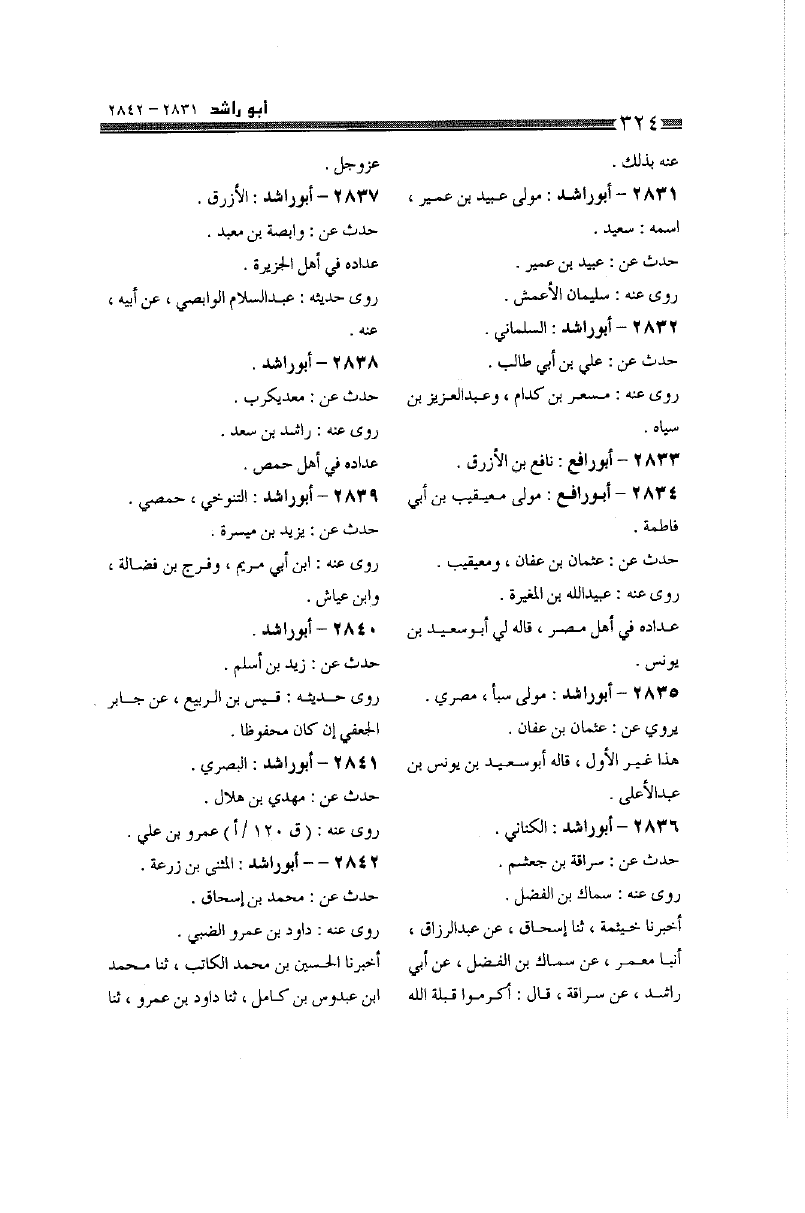 أبو راشد ٢٨٣١ – ٢٨٤٢
٣٢٤
عنه بذلك .
٢٨٣١ – أبوراشد : مولى عبيد بن عمير ،
اسمه : سعيد .
حدث عن : عبيد بن عمير .
روى عنه : سليمان الأعمش .
٢٨٣٢ – أبوراشد : السلماني .
حدث عن : علي بن أبي طالب .
روى عنه : مسعر بن كدام ، وعبدالعزيز بن
سياه .
٢٨٣٣ – أبورافع : نافع بن الأزرق .
٢٨٣٤ – أبورافع : مولى معيقيب بن أبي
فاطمة .
حدث عن : عثمان بن عفان ، ومعيقيب .
روى عنه : عبيدالله بن المغيرة .
عداده في أهل مصر ، قاله لي أبوسعيد بن
يونس .
٢٨٣٥ – أبوراشد : مولى سبأ ، مصري .
يروي عن : عثمان بن عفان .
هذا غير الأول ، قاله أبوسعيد بن يونس بن
عبدالأعلى .
٢٨٣٦ – أبوراشد : الكناني .
حدث عن : سراقة بن جعشم .
روى عنه : سماك بن الفضل .
أخبرنا خيثمة ، ثنا إسحاق ، عن عبدالرزاق ،
أنبا معمر ، عن سماك بن الفضل ، عن أبي
راشد ، عن سراقة ، قال : أكرموا قبلة الله
عزوجل .
٢٨٣٧ – أبوراشد : الأزرق .
حدث عن : وابصة بن معبد .
عداده في أهل الجزيرة .
روى حديثه : عبدالسلام الوابصي ، عن أبيه ،
عنه .
٢٨٣٨ – أبوراشد .
حدث عن : معديكرب .
روى عنه : راشد بن سعد .
عداده في أهل حمص .
٢٨٣٩ – أبوراشد : التنوخي ، حمصي .
حدث عن : يزيد بن ميسرة .
روى عنه : ابن أبي مريم ، وفرج بن فضالة ،
وابن عياش .
٢٨٤٠ – أبوراشد .
حدث عن : زيد بن أسلم .
روى حديثه : قيس بن الربيع ، عن جابر
الجعفي إن كان محفوظا .
٢٨٤١ – أبوراشد : البصري .
حدث عن : مهدي بن هلال .
روى عنه : ( ق ١٢٠ /أ ) عمرو بن علي .
٢٨٤٢ – – أبوراشد : المثنى بن زرعة .
حدث عن : محمد بن إسحاق .
روى عنه : داود بن عمرو الضبي .
أخبرنا الحسين بن محمد الكاتب ، ثنا محمد
ابن عبدوس بن كامل ، ثنا داود بن عمرو ، ثنا